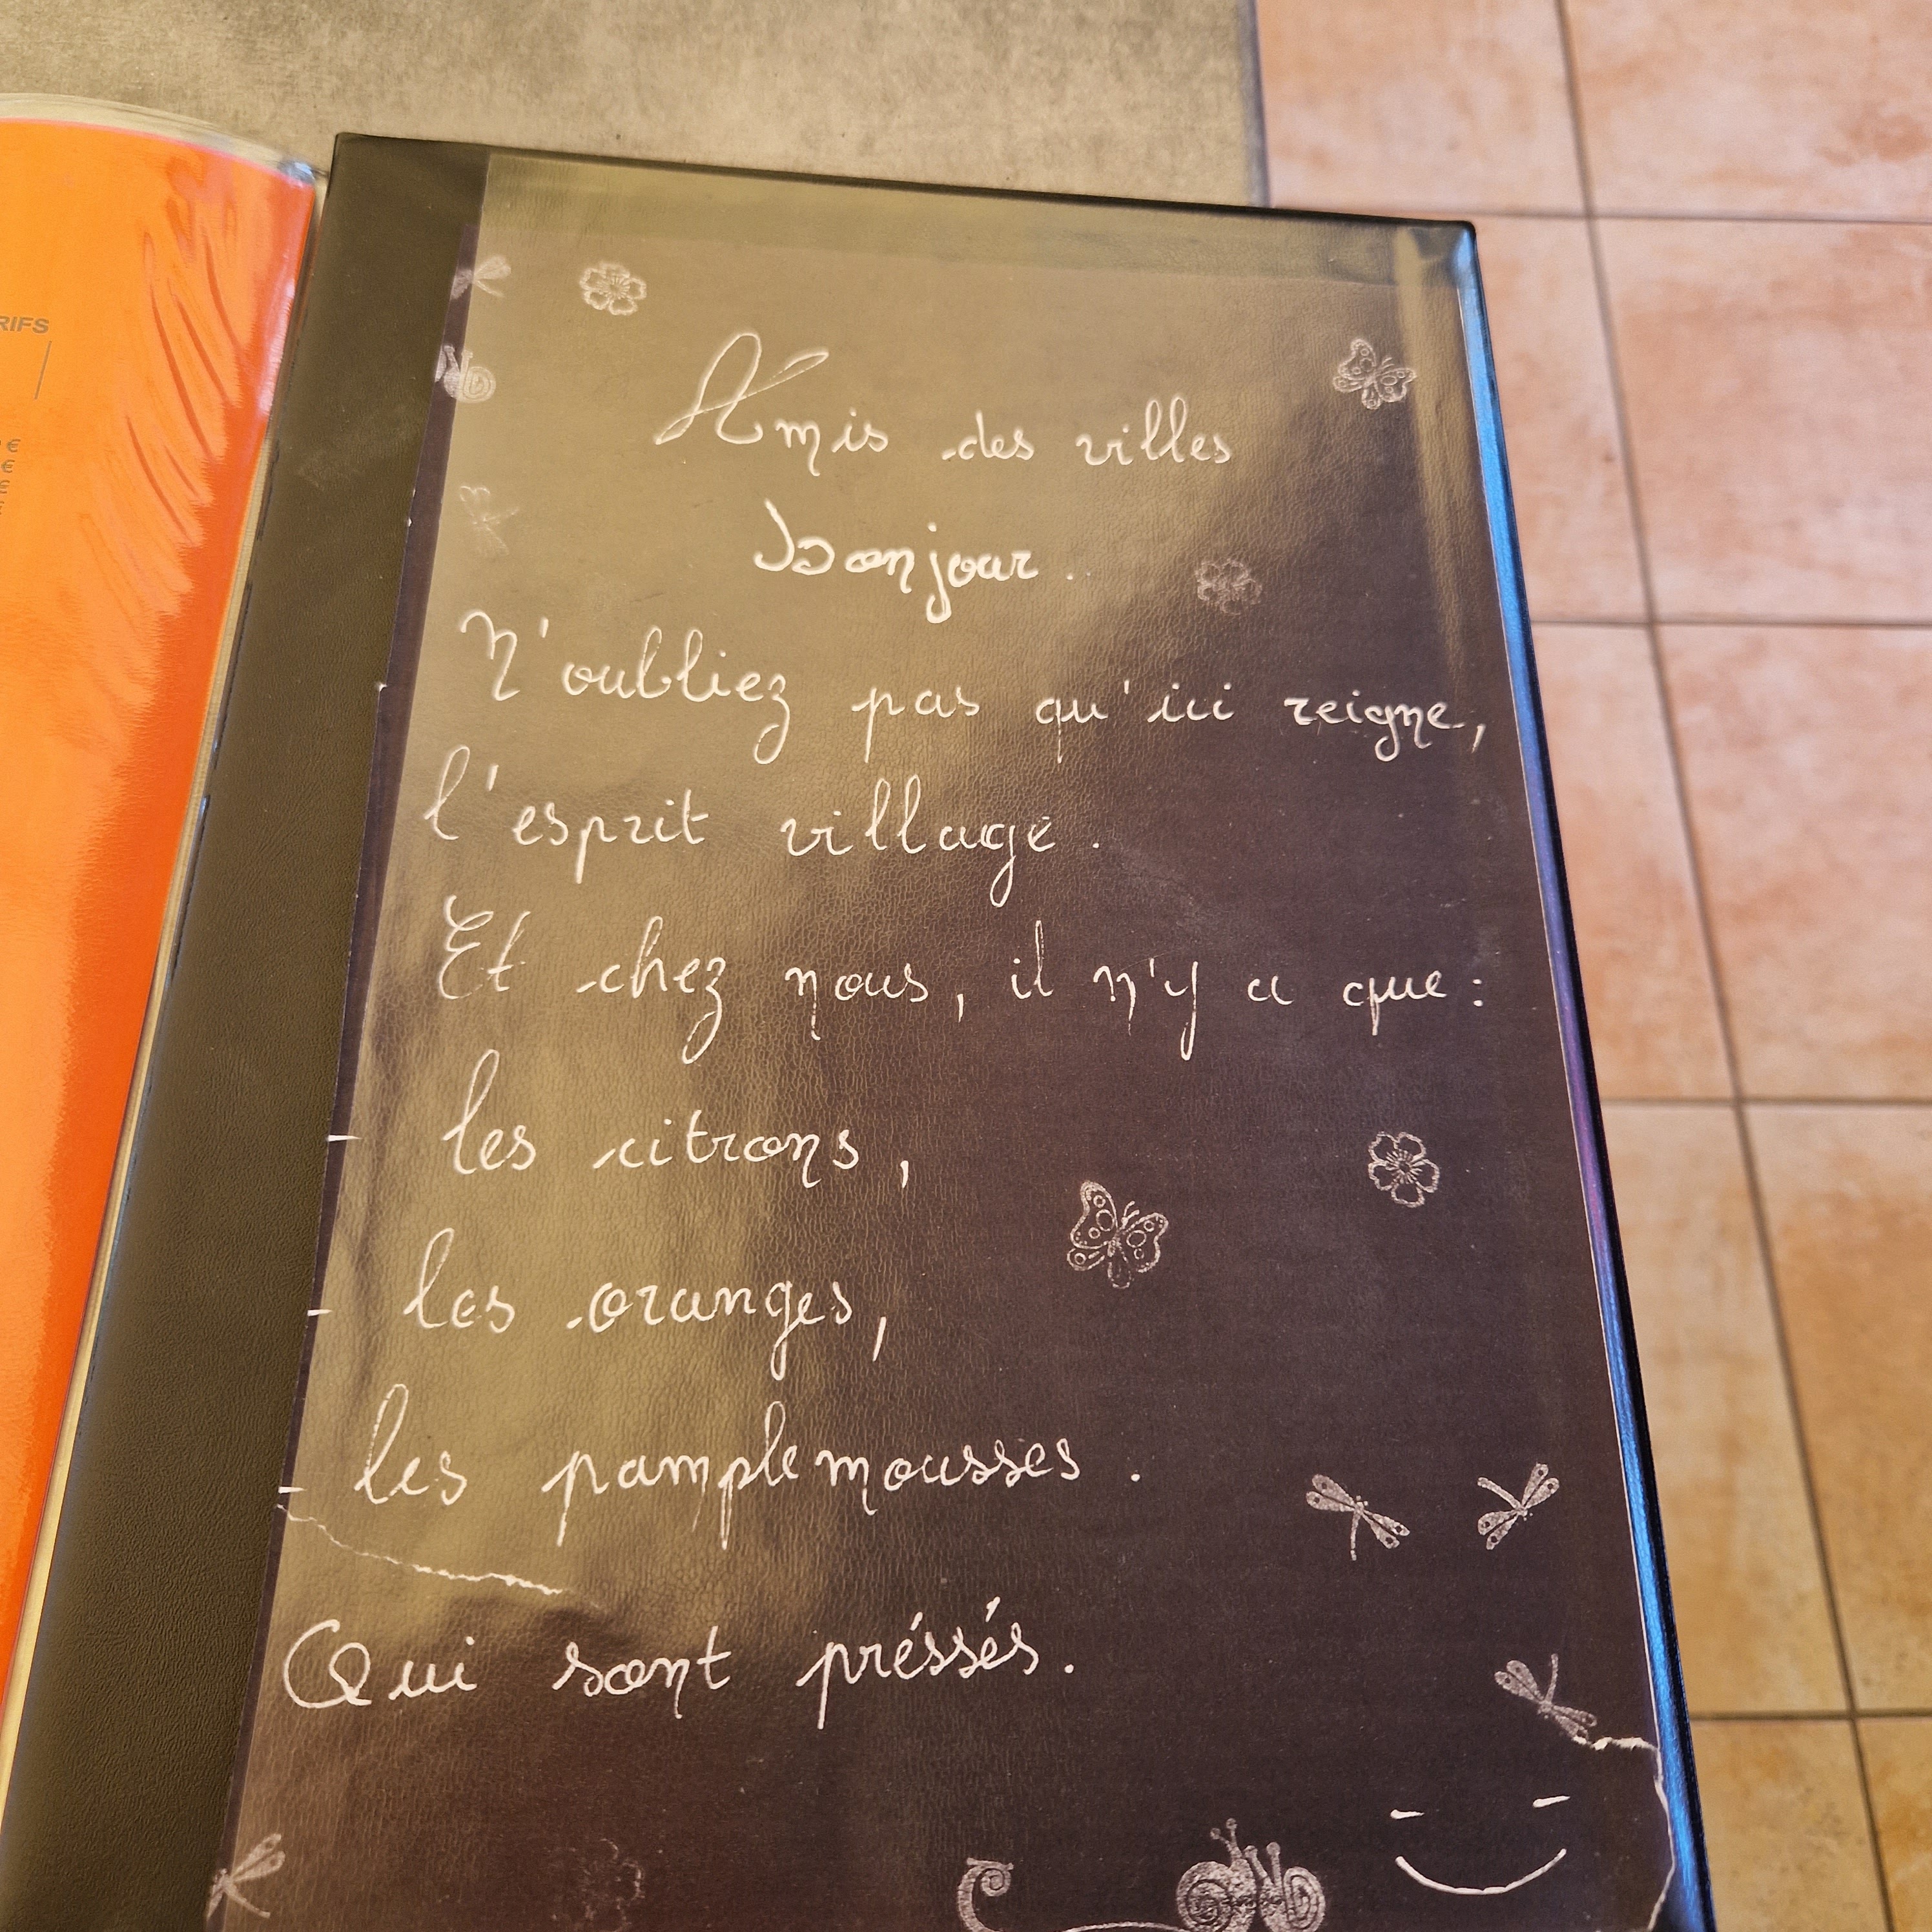 RIFS
€
€
€
€
Amis des villes
bonjour.
N'oubliez pas qu'ici reigne,
l'esprit village.
Et chez nous, il n'y a que:
- les citrons,
- les oranges,
- les pamplemousses.
Qui sont préssés.